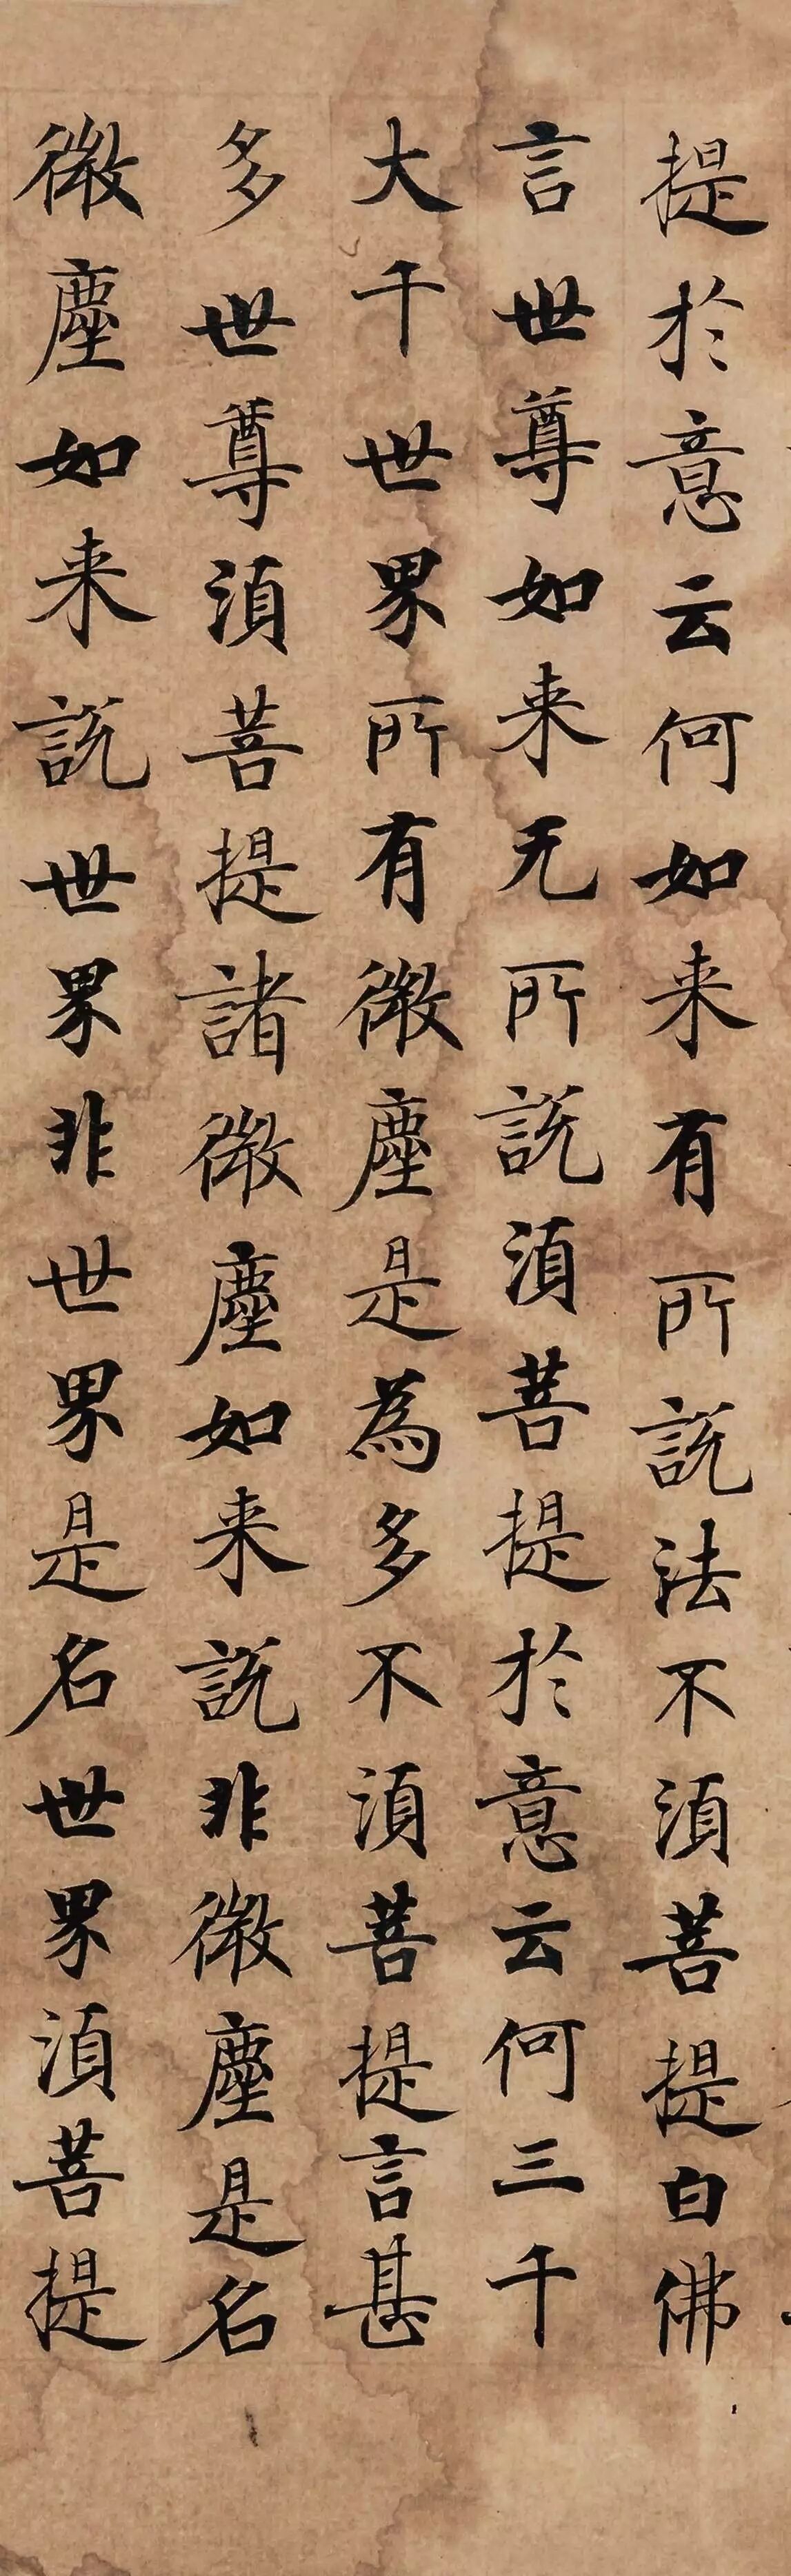 提於意云何如来有所説法不須菩提白佛
言世尊如来无所説須菩提於意云何三千
大千世界所有微塵是為多不須菩提言甚
多世尊須菩提諸微塵如来説非微塵是名
微塵如来説世界非世界是名世界須菩提